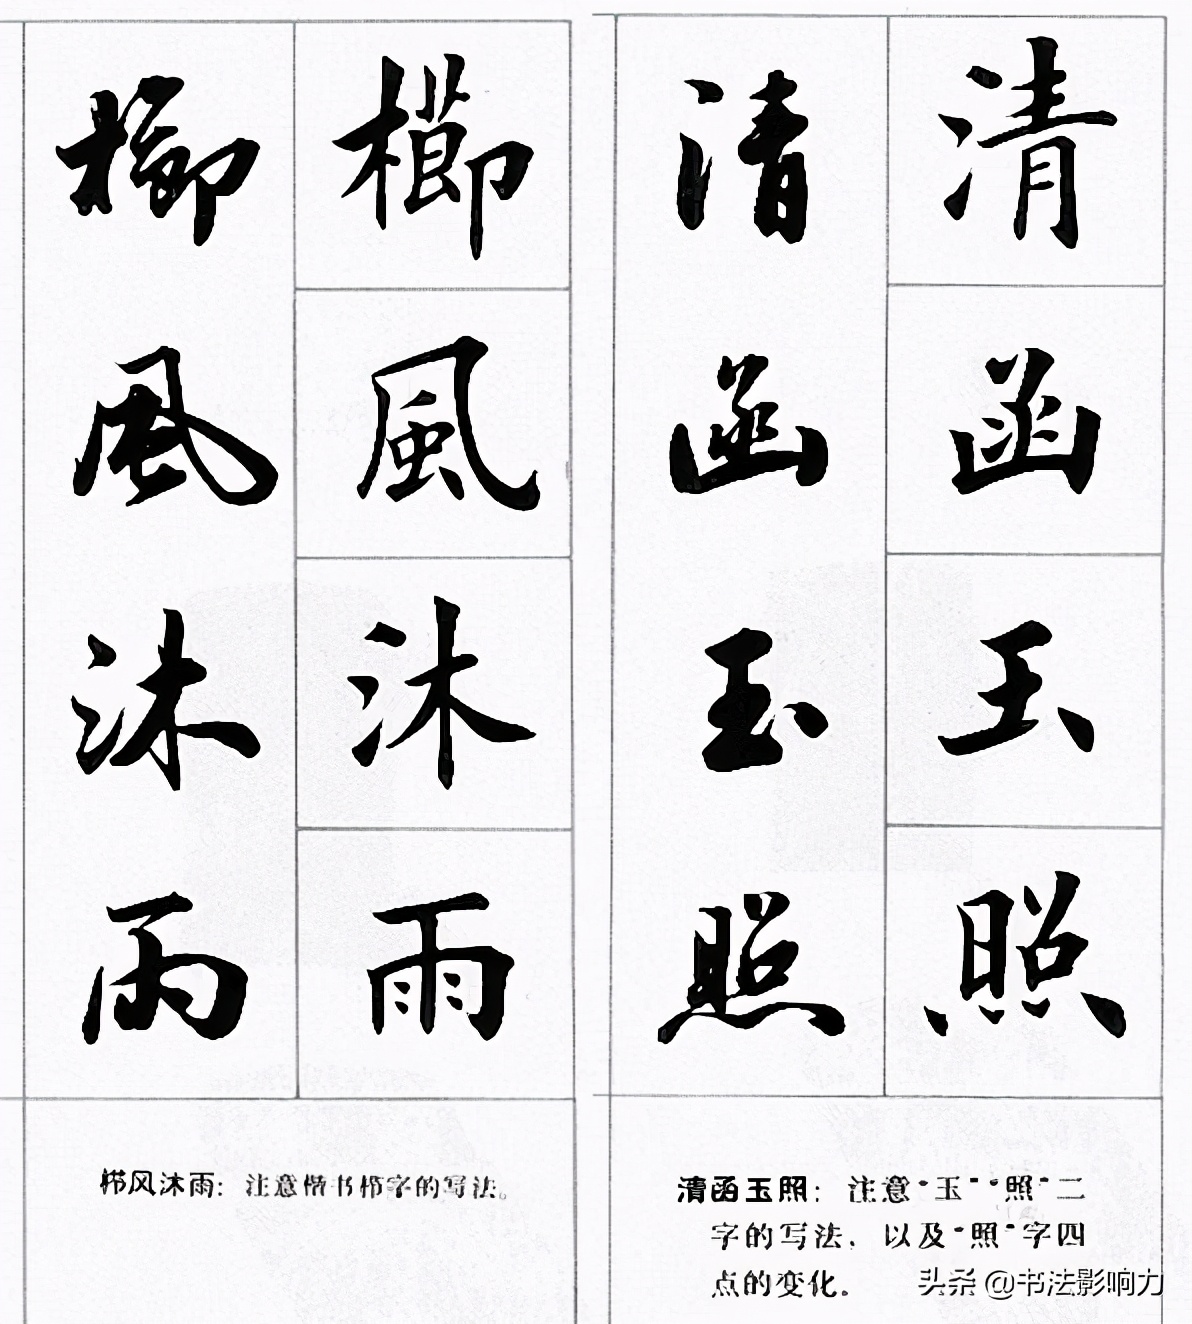 清函玉照
清函玉照
櫛風沐雨
櫛風沐雨
栉风沐雨：注意楷书栉字的写法。
清函玉照：注意“玉”“照”二
字的写法，以及“照”字四
点的变化。
头条 @书法影响力